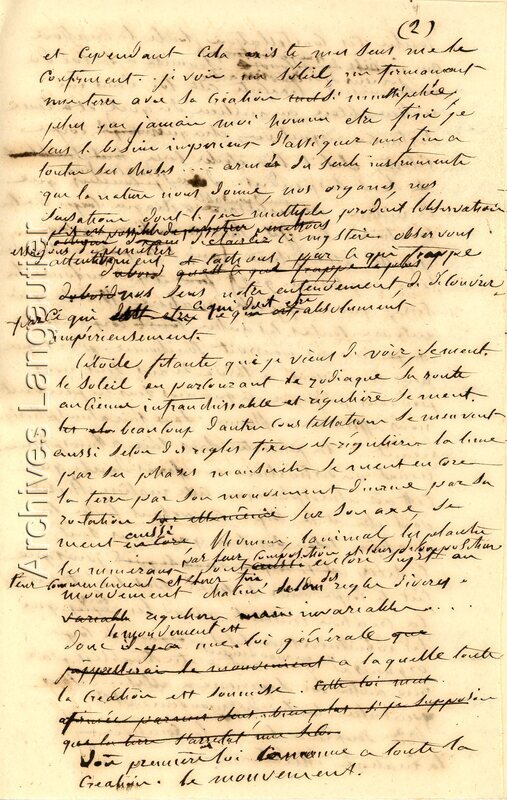 (2)
et cependant cela existe mes sens me le
confirment. je vois un soleil, un firmament
une terre avec sa création si multipliée,
plus que jamais moi homme etre finie je
sens le besoin imperieux d'assigner une fin a
toutes ces choses ... armés des seuls instruments
que la nature nous donne, nos organes, nos
sensations dont le jeu multiple produit l'observation
le mystère observons
attentivement et tachons par ce qui frappe
d'abord nos sens notre entendement de découvrir
par ce qui ce qui doit etre absolument
impérieusement.
L'étoile filante que je viens de voir se meut.
le Soleil en parcourant le zodiaque sa route
ancienne infranchissable et régulière se meut,
beaucoup d'autres constellations se meuvent
aussi selon des regles fixes et régulières la lune
par ses phases mensuelles se meut encore
la terre par son mouvement diurne par sa
rotation sur son axe, se
meut aussi L'homme, l'animal, les plantes
les mineraux par leur composition et leur décomposition
leur commencement et leur fin sont encore sujets au
mouvement selon des regles diverses
variable régulières invariables ...
donc le mouvement est une loi générale que
j'appellerai le mouvement a laquelle toute
la création est soumise. Cette loi meut
que la terre s'arretat une
première loi commune a toute la
création. le mouvement.
Archives Langautier